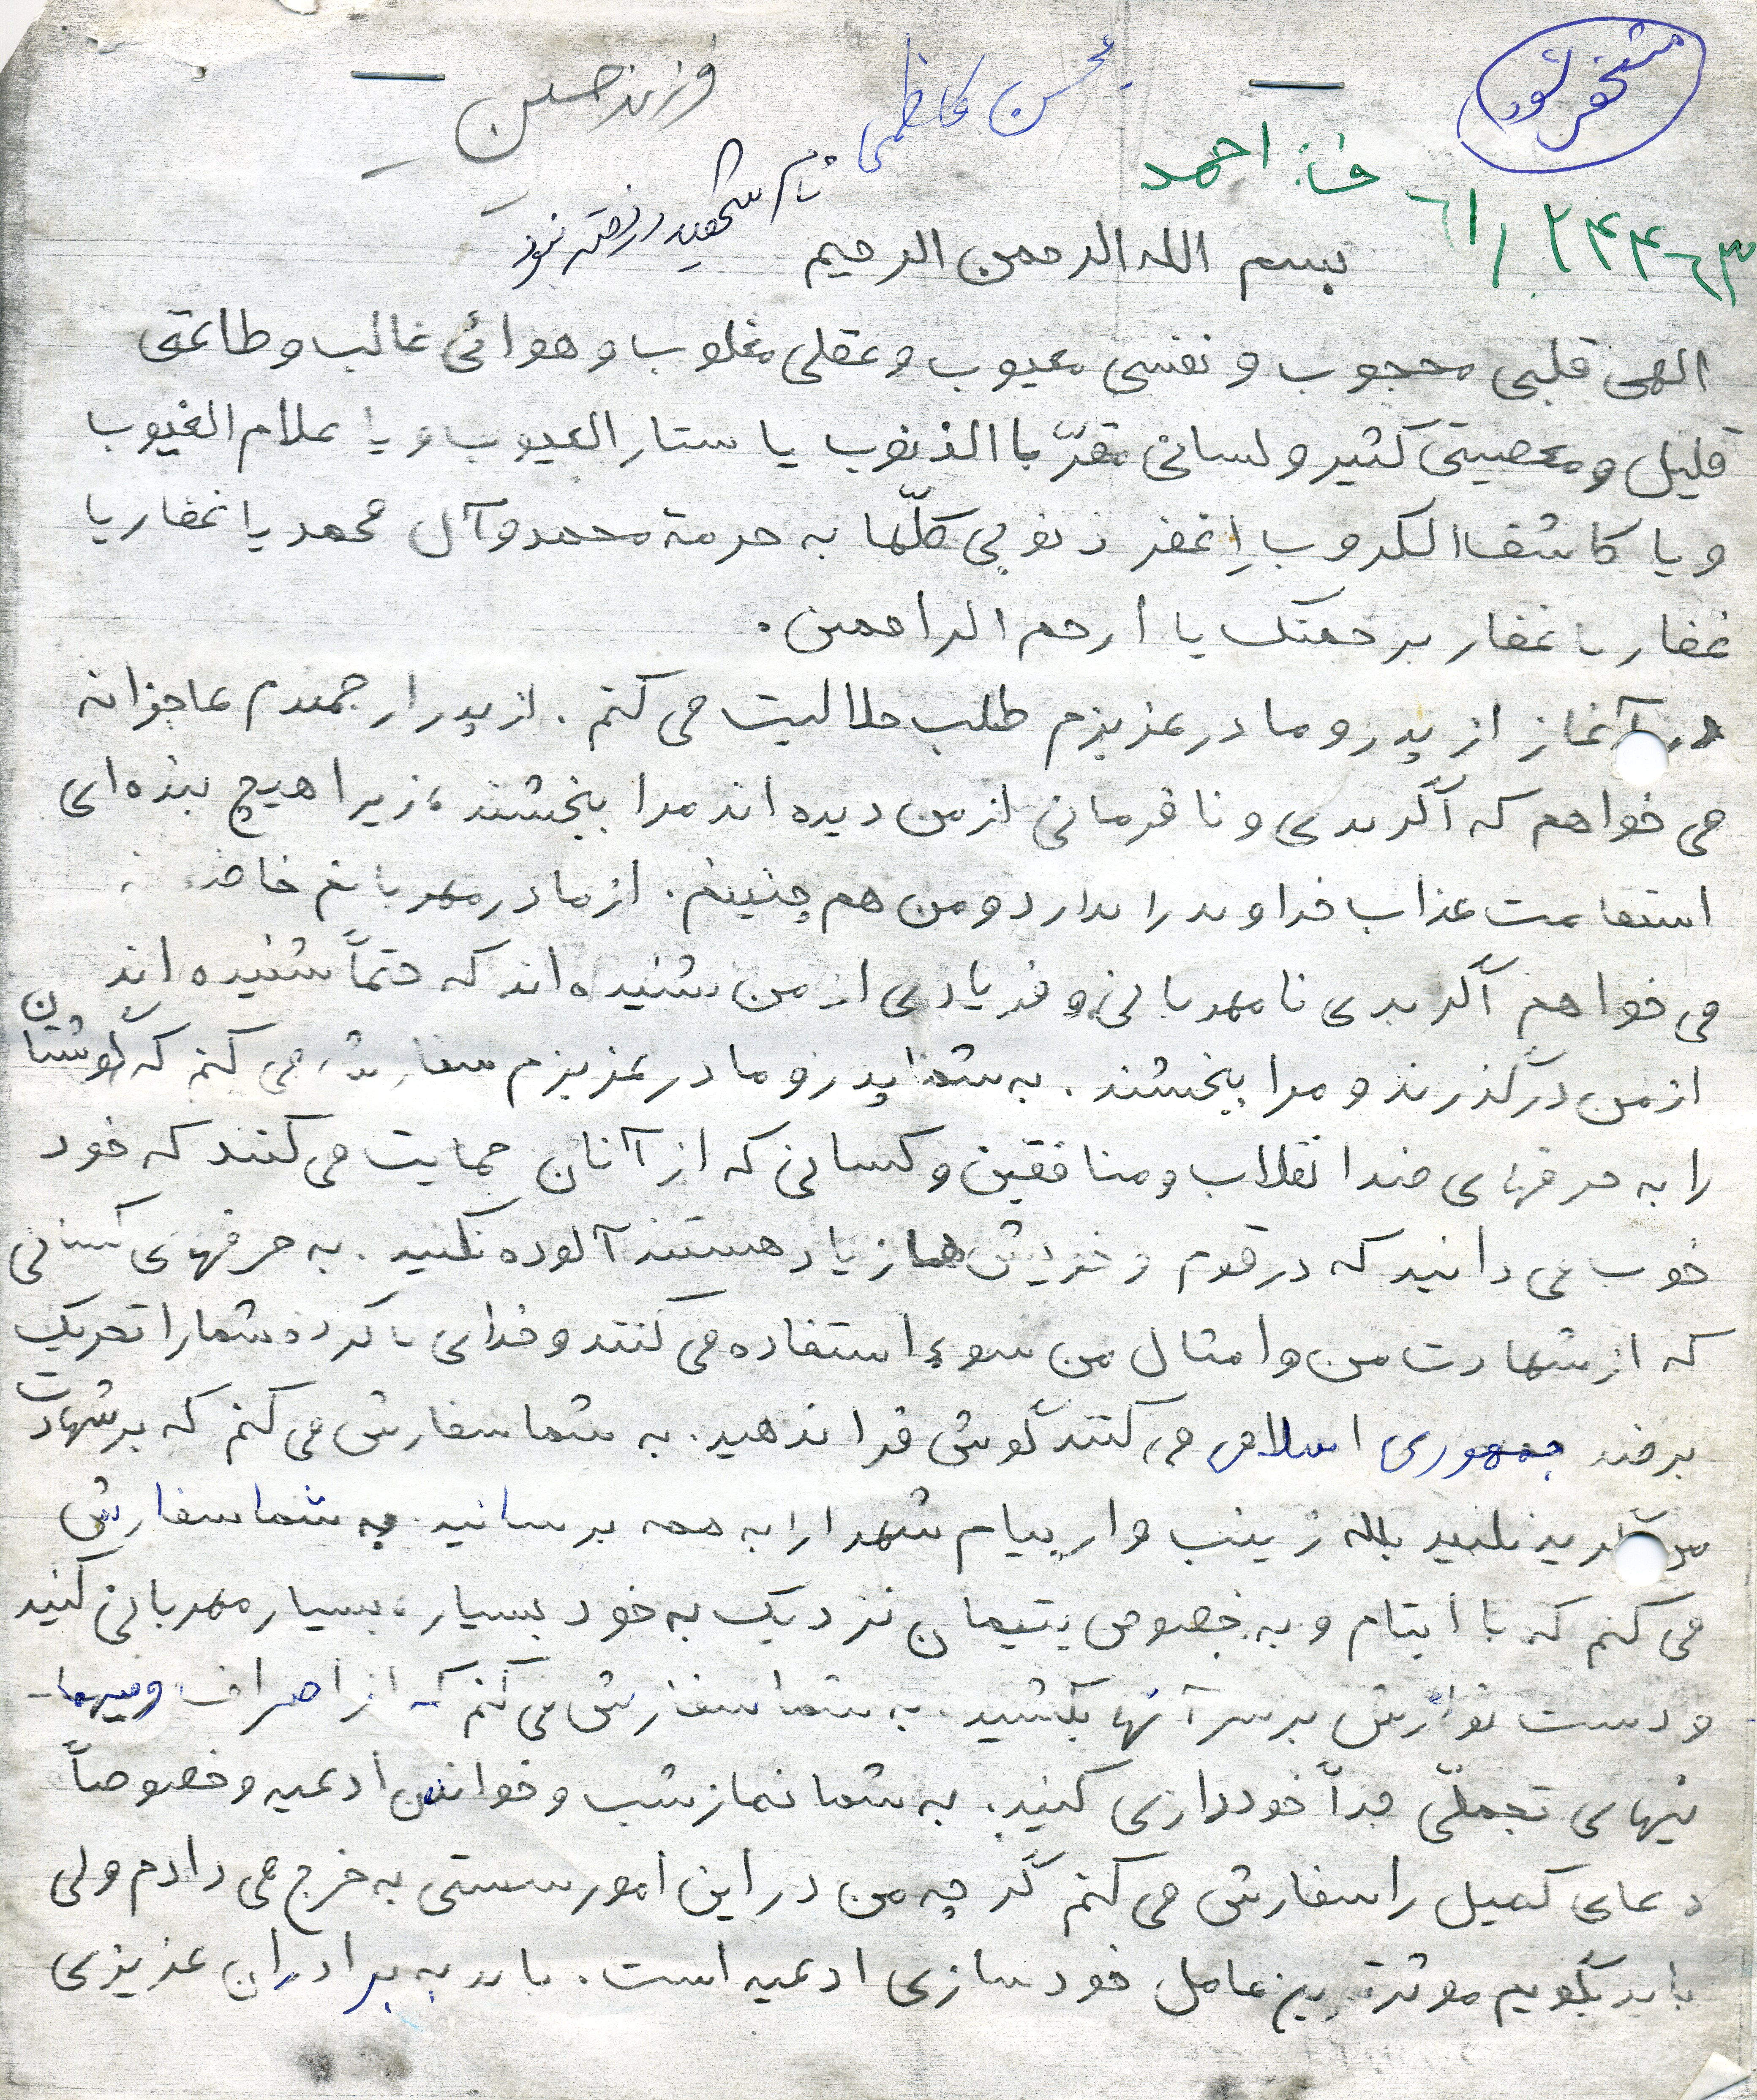 مشخص شود
محسن کاظمی
فرزند حسین
احمد
۶۱/۲۴۴۶۳
نام شهید نوشته شود
بسم الله الرحمن الرحیم
الهی قلبی محجوب و نفسی معیوب و عقلی مغلوب و هوائی غالب و طاعتی
قلیل و معصیتی کثیر و لسانی مقرّ باالذنوب یا ستار العیوب و یا علام الغیوب
و یا کاشف الکروب اِغفر ذنوبی کلّها به حرمة محمد و آل محمد یا غفار یا
غفار یا غفار برحمتک یا ارحم الراحمین.
در آغاز از پدر و مادر عزیزم طلب حلالیت می کنم. از پدر ارجمندم عاجزانه
می خواهم که اگر بدی و نافرمانی از من دیده اند مرا ببخشند، زیرا هیچ بنده ای
استقامت عذاب خداوند را ندارد و من هم چنینم. از مادر مهربانم
می خواهم اگر بدی نامهربانی و فریادی از من شنیده اند که حتماً شنیده اند
از من درگذرند و مرا ببخشند. به شما پدر و مادر عزیزم سفارش می کنم که گوشتان
را به حرفهای ضد انقلاب و منافقین و کسانی که از آنان حمایت می کنند که خود
خوب می دانید که در قوم و خویش ها زیاد هستند آلوده نکنید. به حرفهای کسانی
که از شهادت من و امثال من سوء استفاده می کنند و خدای ناکرده شما را تحریک
بر ضد جمهوری اسلامی می کنند گوش فرا ندهید. به شما سفارش می کنم که بر شهادت
من گریه نکنید بلکه زینب وار پیام شهدا را به همه برسانید. به شما سفارش
می کنم که با ایتام و به خصوص یتیمان نزدیک به خود بسیار، بسیار مهربانی کنید
و دست نوازش بر سر آنها بکشید. به شما سفارش می کنم که از اصراف و میهما-
نیهای تجملّی جداً خودداری کنید. به شما نماز شب و خواندن ادعیه و خصوصاً
دعای کمیل را سفارش می کنم گر چه من در این امور سستی به خرج می دادم ولی
باید بگویم موثرترین عامل خودسازی ادعیه است. باید به برادران عزیزی